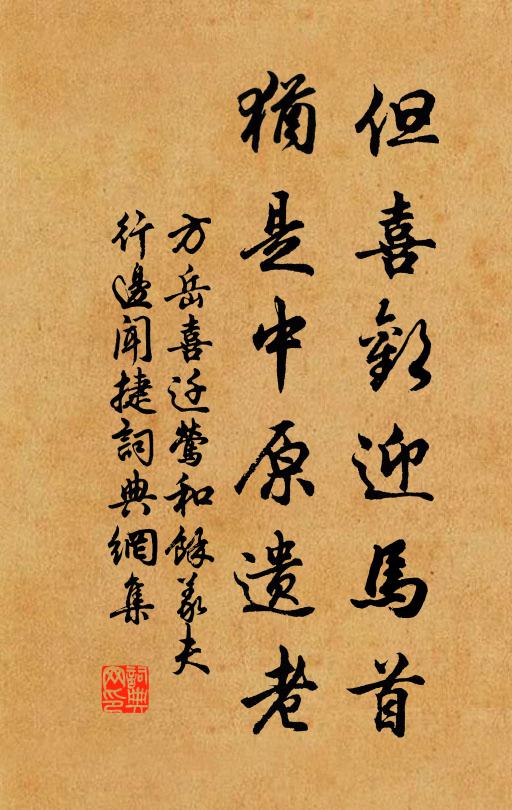 但喜歡迎馬首
猶是中原遺老
方岳喜迁鶯和餘義夫
行邊聞捷詞典網集
詞典网印